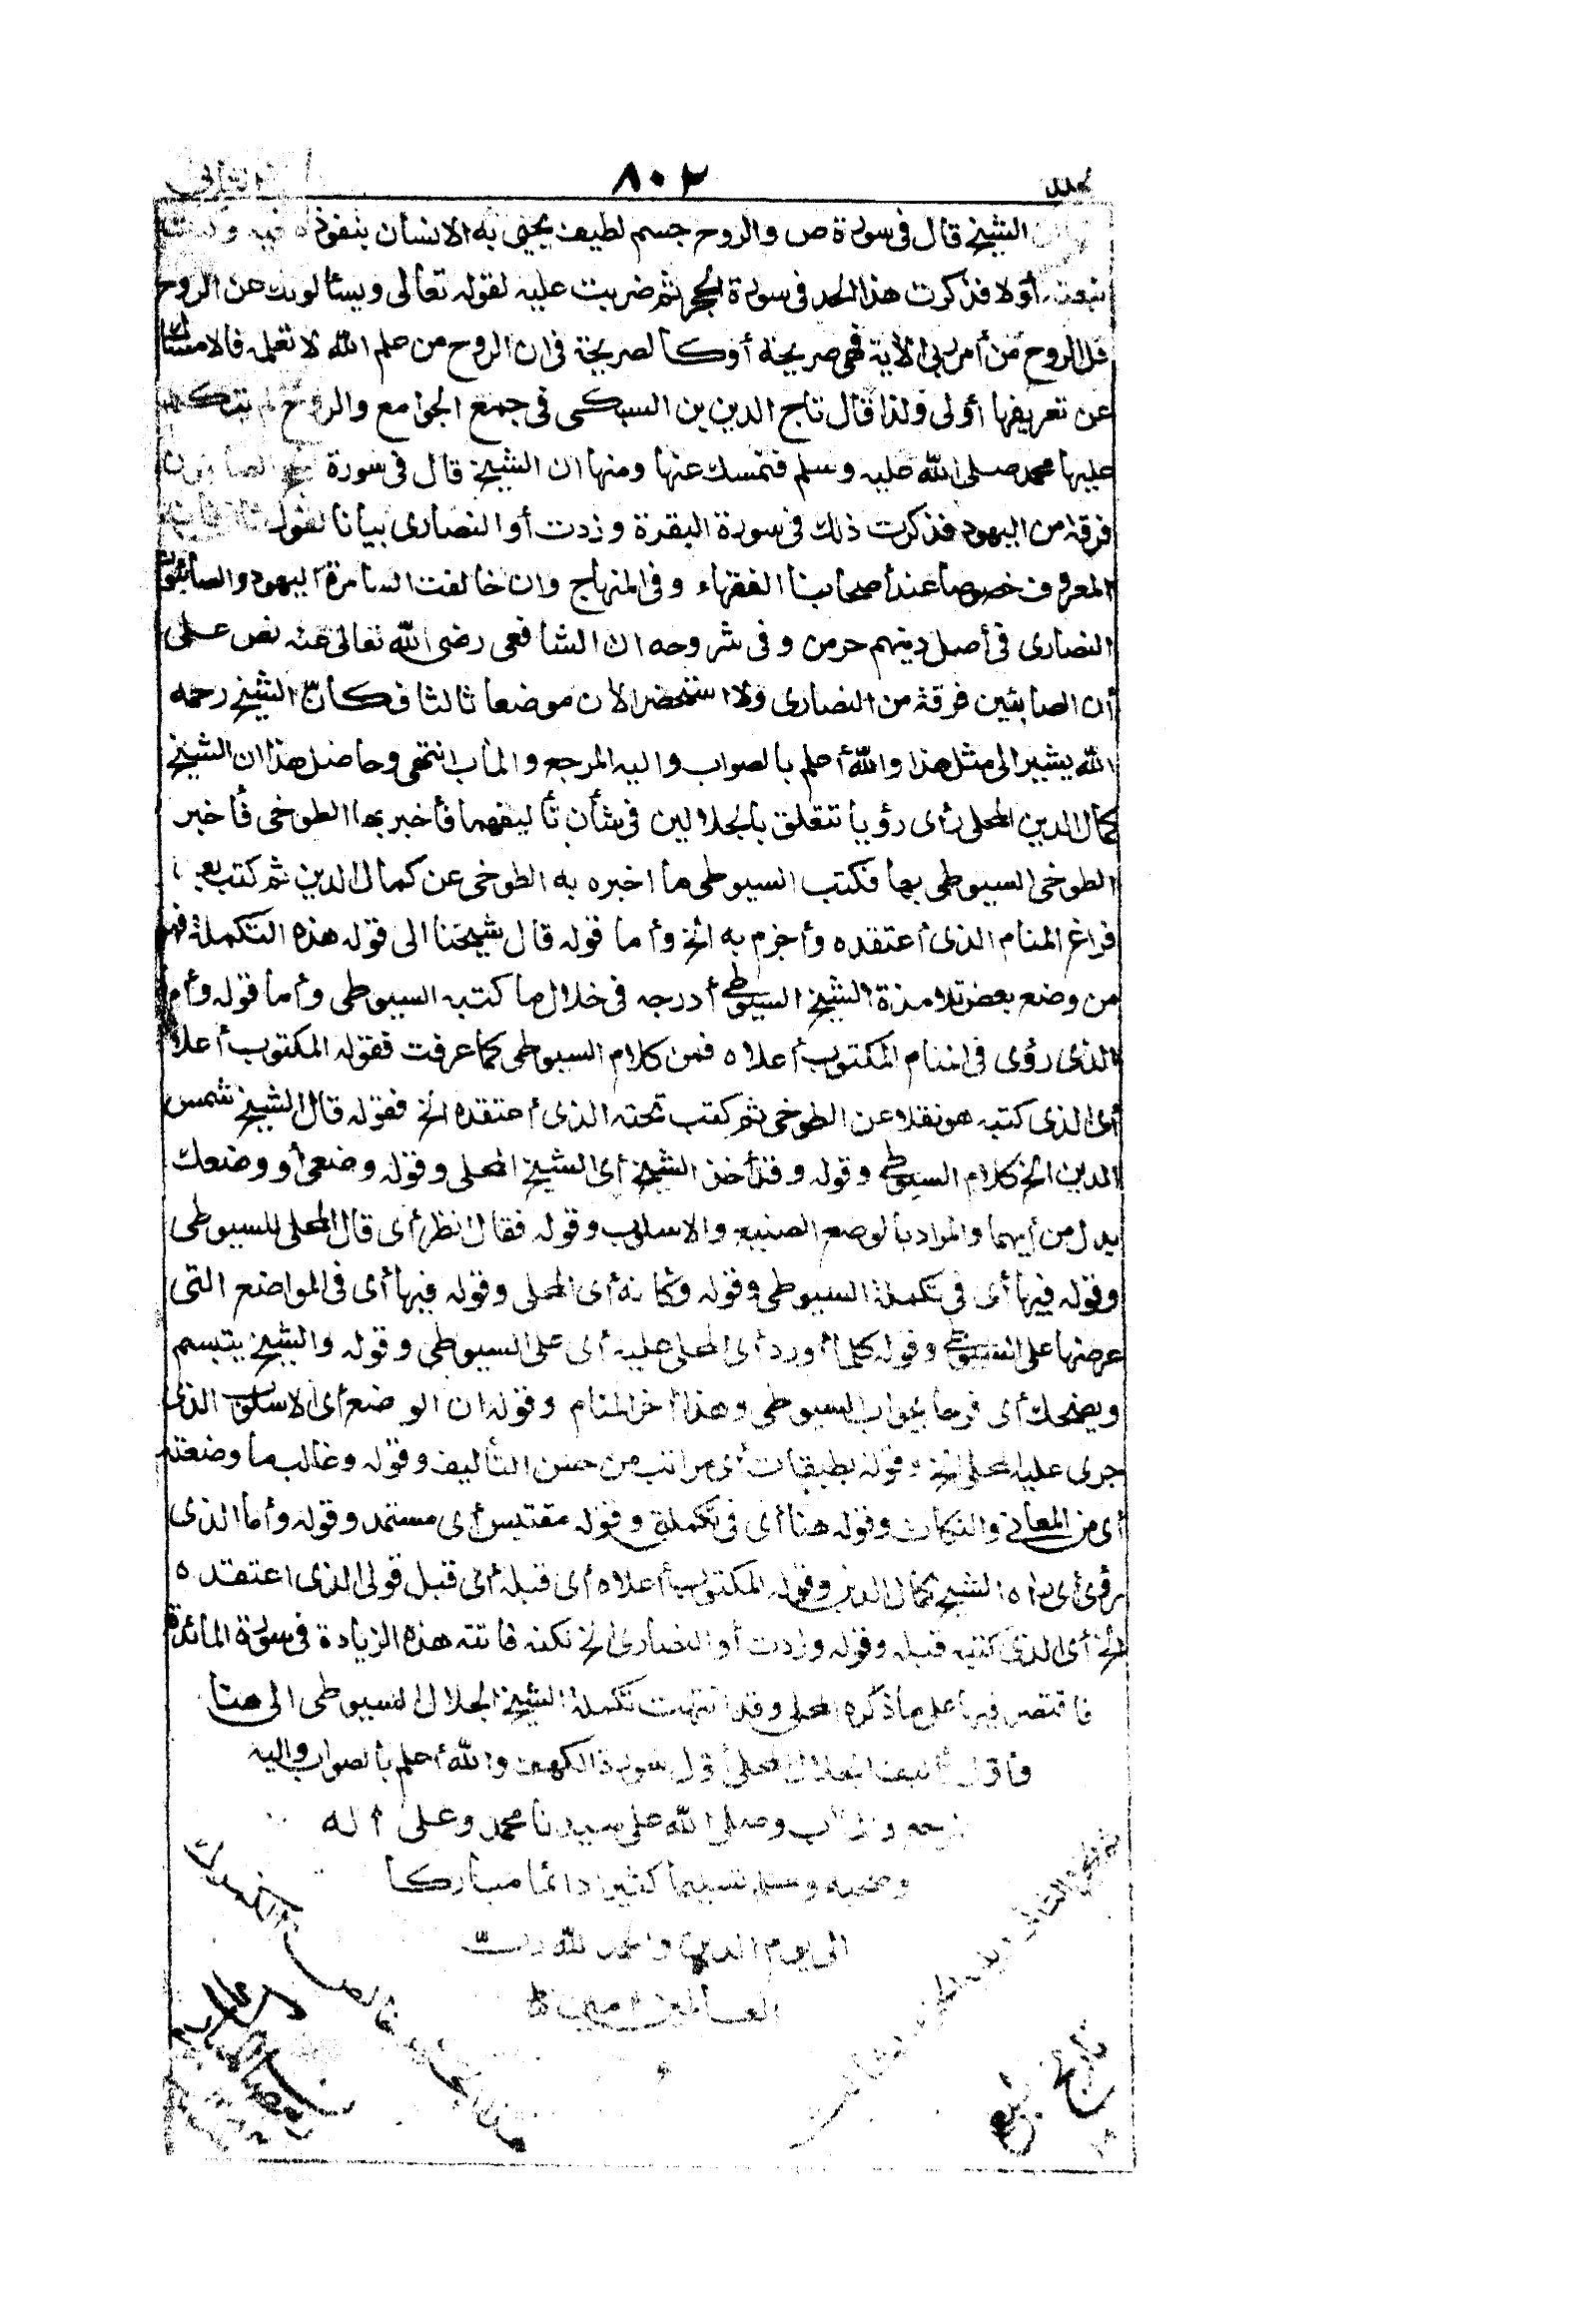 مجلد ٨٠٢
الشيخ قال في سورة ص والروح جسم لطيف يحيى به الانسان بنفوذه فيه وكنت
تبعته أولا فذكرت هذا الحد في سورة الحجر ثم ضربت عليه لقوله تعالى ويسئالونك عن الروح
قل الروح من أمر ربي الأية فهي صريحة أو كالصريحة في ان الروح من علم الله لا تعلمه فالامساك
عن تعريفها أولى ولذا قال تاج الدين بن السبكي في جمع الجوامع والروح لم يتكلم
عليها محمد صلى الله عليه وسلم فنمسك عنها ومنها ان الشيخ قال في سورة الحج الصابئون
فرقة من اليهود فذكرت ذلك في سورة البقرة وزدت أو النصارى بيانا لقول ثان فانه
المعروف خصوصا عند أصحابنا الفقهاء وفي المنهاج وان خالفت السامرة اليهود والصابئون
النصارى في أصل دينهم حرمن وفي شروحه ان الشافعي رضي الله تعالى عنه نص على
أن الصابئين فرقة من النصارى ولا استحضر الأن موضعا ثالثا فكأنّ الشيخ رحمه
الله يشير الى مثل هذا والله أعلم بالصواب واليه المرجع والمأب انتهى وحاصل هذا ان الشيخ
كمال الدين المحلى رأى رؤيا تتعلق بالجلالين في شأن تأليفهما فأخبر بها الطوخى فأخبر
الطوخى السيوطى بها فكتب السيوطى ما اخبره به الطوخى عن كمال الدين ثم كتب بعد
فراغ المنام الذى أعتقده وأجزم به الخ وأما قوله قال شيخنا الى قوله هذه التكملة فهو
من وضع بعض تلامذة الشيخ السيوطي أدرجه في خلال ما كتبه السيوطى وأما قوله وأما
الذى رؤى في المنام المكتوب أعلاه فمن كلام السيوطى كما عرفت فقوله المكتوب أعلاه
أى الذى كتبه هو نقلا عن الطوخى ثم كتب تحته الذى أعتقده الخ فقوله قال الشيخ شمس
الدين الخ كلام السيوطى وقوله وقد أخذ الشيخ أى الشيخ المحلى وقوله وضعى أو وضعك
بدل من أيهما والمراد بالوضع الصنيع والاسلوب وقوله فقال انظر أى قال المحلى للسيوطى
وقوله فيها أى في تكملة السيوطى وقوله وكأنه أى المحلى وقوله فيها أى في المواضع التى
عرضها على السيوطى وقوله كلما أورد أى المحلى عليه أى على السيوطى وقوله والشيخ يتبسم
ويضحك أى فرحا بجواب السيوطى وهذا أخر المنام وقوله ان الوضع أى الاسلوب الذى
جرى عليه المحلى الخ وقوله بطبقات أى مراتب من حسن التأليف وقوله وغالب ما وضعته
أى من المعانى والنكات وقوله هنا أى في تكملة وقوله مقتبس أى مستمد وقوله وأما الذى
رؤى أى رأه الشيخ كمال الدين وقوله المكتوب أعلاه أى قبله أى قبل قولى الذى اعتقده
الخ أى الذى كتبه قبله وقوله وزدت أو النصارى الخ لكنه فاتته هذه الزيادة في سورة المائدة
فاقتصر فيها على ما ذكره المحلى وقد انتهت تكملة الشيخ الجلال السيوطى الى هنا
فأول تأليف الجلال المحلى أول سورة الكهف والله أعلم بالصواب واليه
المرجع والمأب وصلى الله على سيدنا محمد وعلى أله
وصحبه وسلم تسليما كثيرا دائما مباركا
الى يوم الدين والحمد لله ربّ
العالمين أمين
تاريخ طبع